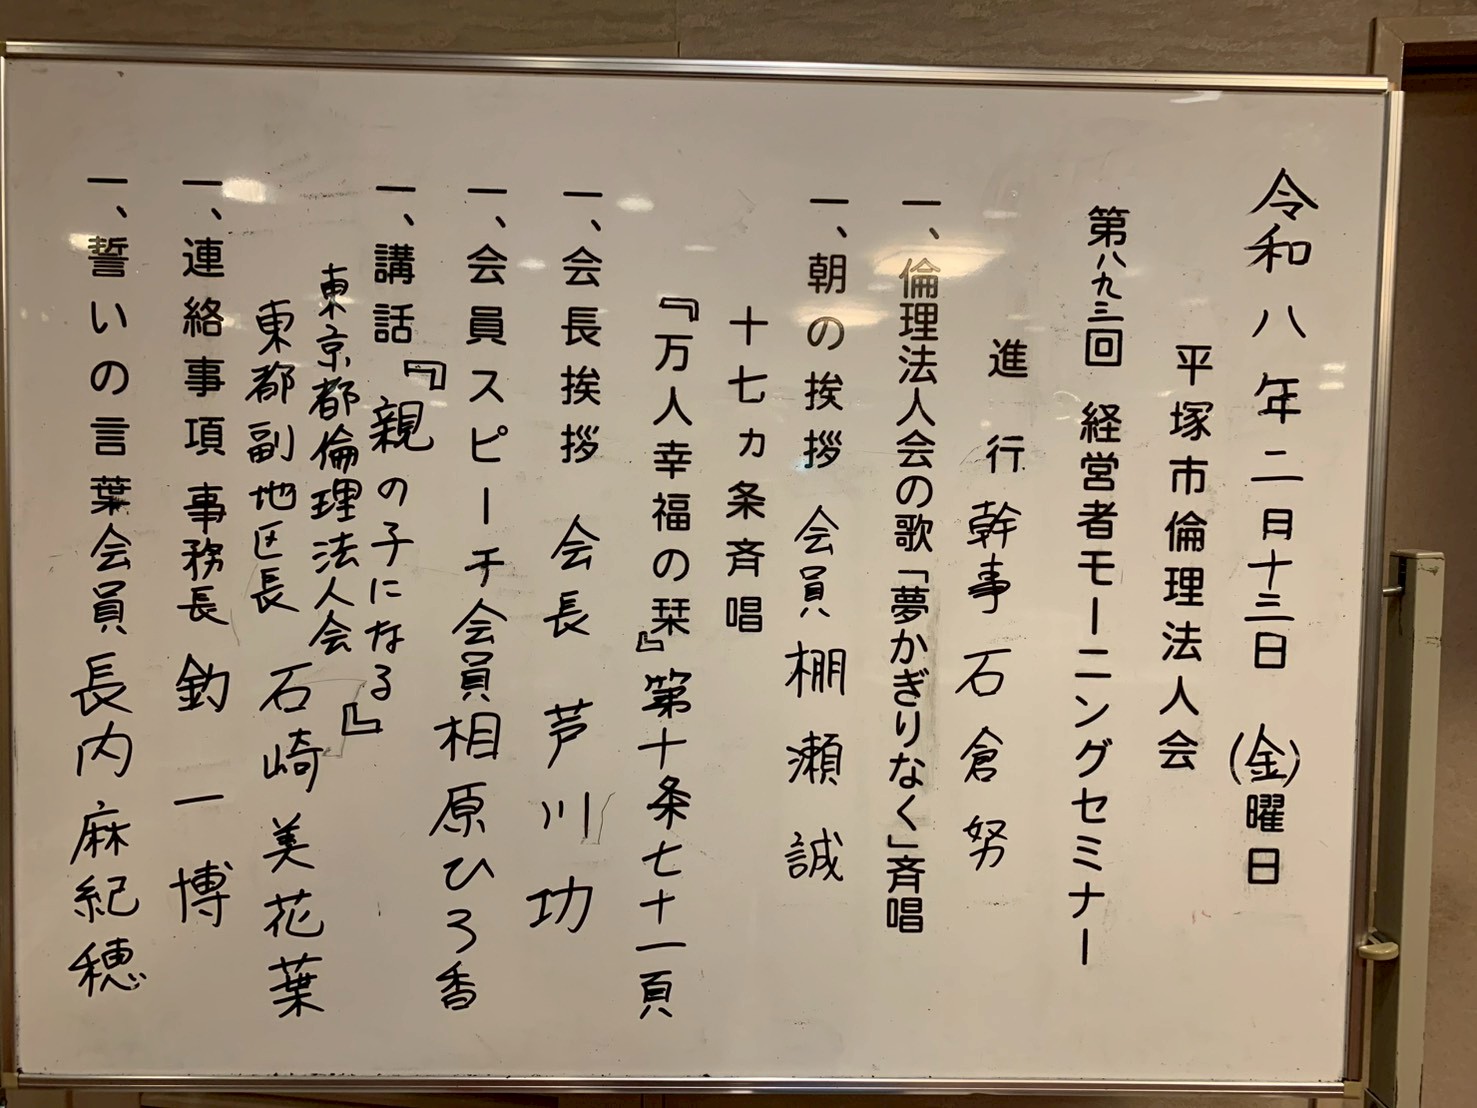 令和八年二月十三日(金)曜日
平塚市倫理法人会
第八九三回 経営者モーニングセミナー
進行 幹事 石倉 努
一、倫理法人会の歌「夢かぎりなく」斉唱
一、朝の挨拶 会員 棚瀬 誠
十七ヵ条斉唱
『万人幸福の栞』第十条七十一頁
一、会長挨拶 会長 芦川 功
一、会員スピーチ 会員 相原ひろ香
一、講話『親の子になる』
東京都倫理法人会
東都副地区長 石崎美花葉
一、連絡事項 事務長 釣 一博
一、誓いの言葉 会員 長内麻紀穂